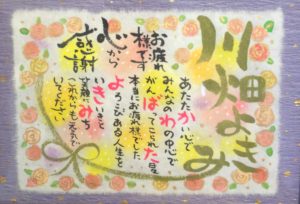 川畑よきみ
お疲れ
様です
心から
感謝
あたたかい心で
みんなのわの中心で
がんばってこられた
本当にお疲れ様でした
よろこびある人生を
いきいきと
笑顔にみち
これからも元気で
いてください